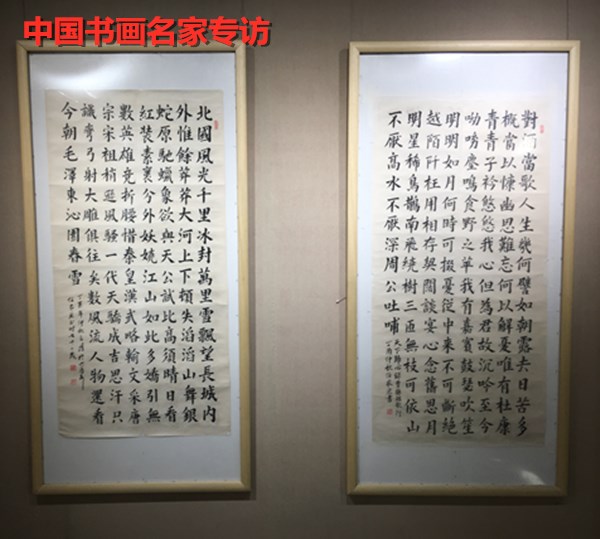 中国书画名家专访
北國風光千里冰封萬里雪飄望長城內
外惟餘莽莽大河上下頓失滔滔山舞銀
蛇原馳蠟象欲與天公試比高須晴日看
紅裝素裹分外妖嬈江山如此多嬌引無
數英雄競折腰惜秦皇漢武略輸文采唐
宗宋祖稍遜風騷一代天驕成吉思汗只
識彎弓射大雕俱往矣數風流人物還看
今朝毛澤東沁園春雪
對酒當歌人生幾何譬如朝露去日苦多
概當以慷幽思難忘何以解憂唯有杜康
青青子衿悠悠我心但為君故沉吟至今
呦呦鹿鳴食野之苹我有嘉賓鼓瑟吹笙
明明如月何時可掇憂從中來不可斷絕
越陌阡枉用相存闊談宴心念舊恩月
明星稀烏鵲南飛繞樹三匝無枝可依山
不厭高水不厭深周公吐哺
天下歸心